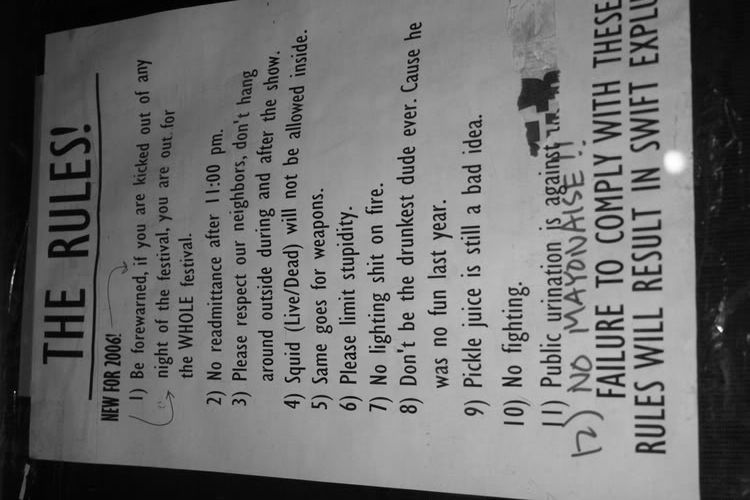 THE RULES!
NEW FOR 2006!
1) Be forewarned, if you are kicked out of any
night of the festival, you are out for
the WHOLE festival.
2) No readmittance after 11:00 pm.
3) Please respect our neighbors, don't hang
around outside during and after the show.
4) Squid (Live/Dead) will not be allowed inside.
5) Same goes for weapons.
6) Please limit stupidity.
7) No lighting shit on fire.
8) Don't be the drunkest dude ever. Cause he
was no fun last year.
9) Pickle juice is still a bad idea.
10) No fighting.
11) Public urination is against
12) NO MAYONAISE!!
FAILURE TO COMPLY WITH THESE
RULES WILL RESULT IN SWIFT EXPLU